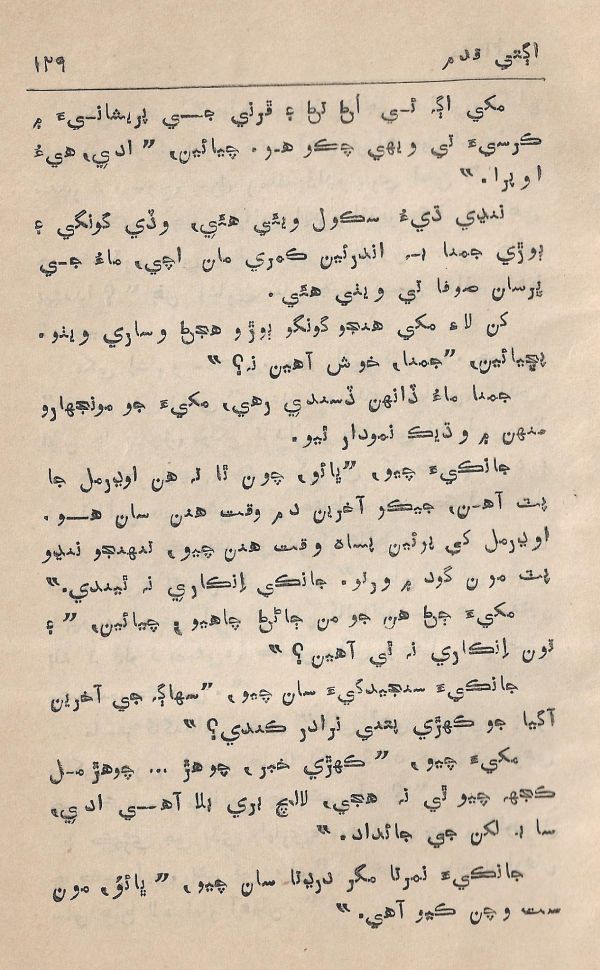 اڳتي قدم ۱۲۹
مکي اڳہ ئي اُڻ تڻ ۽ ڦرڻي جي پريشانيءَ ۾
ڪرسيءَ تي ويهي چڪو هو. چيائين، ”ادي، هيءُ
اوپرا.“
ننڍي ڌيءُ سڪول ويئي هئي، وڏي گونگي ۽
ٻوڙي جمنا بہ اندرئين ڪمري مان اچي، ماءُ جي
ڀرسان صوفا تي ويٺي هئي.
کن لاءِ مکي هنجو گونگو ٻوڙو هجڻ وساري ويٺو.
پڇيائين، ”جمنا، خوش آهين نہ؟“
جمنا ماءُ ڏانهن ڏسندي رهي، مکيءَ جو مونجهارو
منهن ۾ وڌيڪ نمودار ٿيو.
جانڪيءَ چيو، ”ڀائو، چون ٿا تہ هن اوڀرمل جا
پٽ آهن، جيڪو آخرين دم وقت هنن سان هو.
اوڀرمل کي ڀرئين پساهہ وقت هنن چيو، تنهنجو ننڍو
پٽ مون گود ۾ ورتو. جانڪي اِنڪاري نہ ٿيندي.“
مکيءَ ڄڻ هن جو من ڄاڻڻ چاهيو، چيائين، ”۽
تون اِنڪاري نہ ٿي آهين؟“
جانڪيءَ سنجيدگيءَ سان چيو، ”سهاڳہ جي آخرين
آگيا جو ڪهڙي پتني نرادر ڪندي؟“
مکيءَ چيو، ”ڪهڙي خبر، چوهڙ ... چوهڙ مل
ڪجهہ چيو ئي نہ هجي، لالچ بري بلا آهي ادي،
سا بہ لکن جي جائداد.“
جانڪيءَ نمرتا مگر درڍتا سان چيو، ”ڀائوُ، مون
ست وچن ڪيو آهي.“